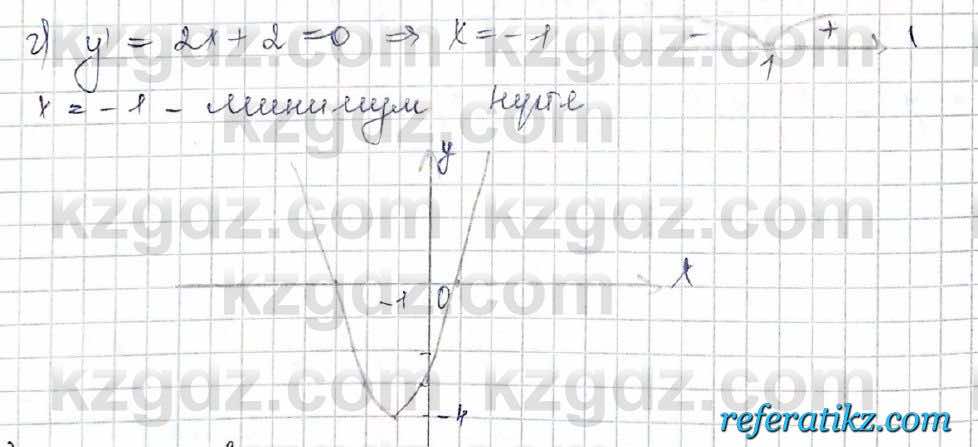 2) y' = 2x + 2 = 0 => x = -1 - + 1
x = -1 - минимум нүкте
y
x
-1 0
-4
kzgdz.com kzgdz.com
kzgdz.com kzgdz.com
kzgdz.com
kzgdz.com kzgdz.com
referatikz.com